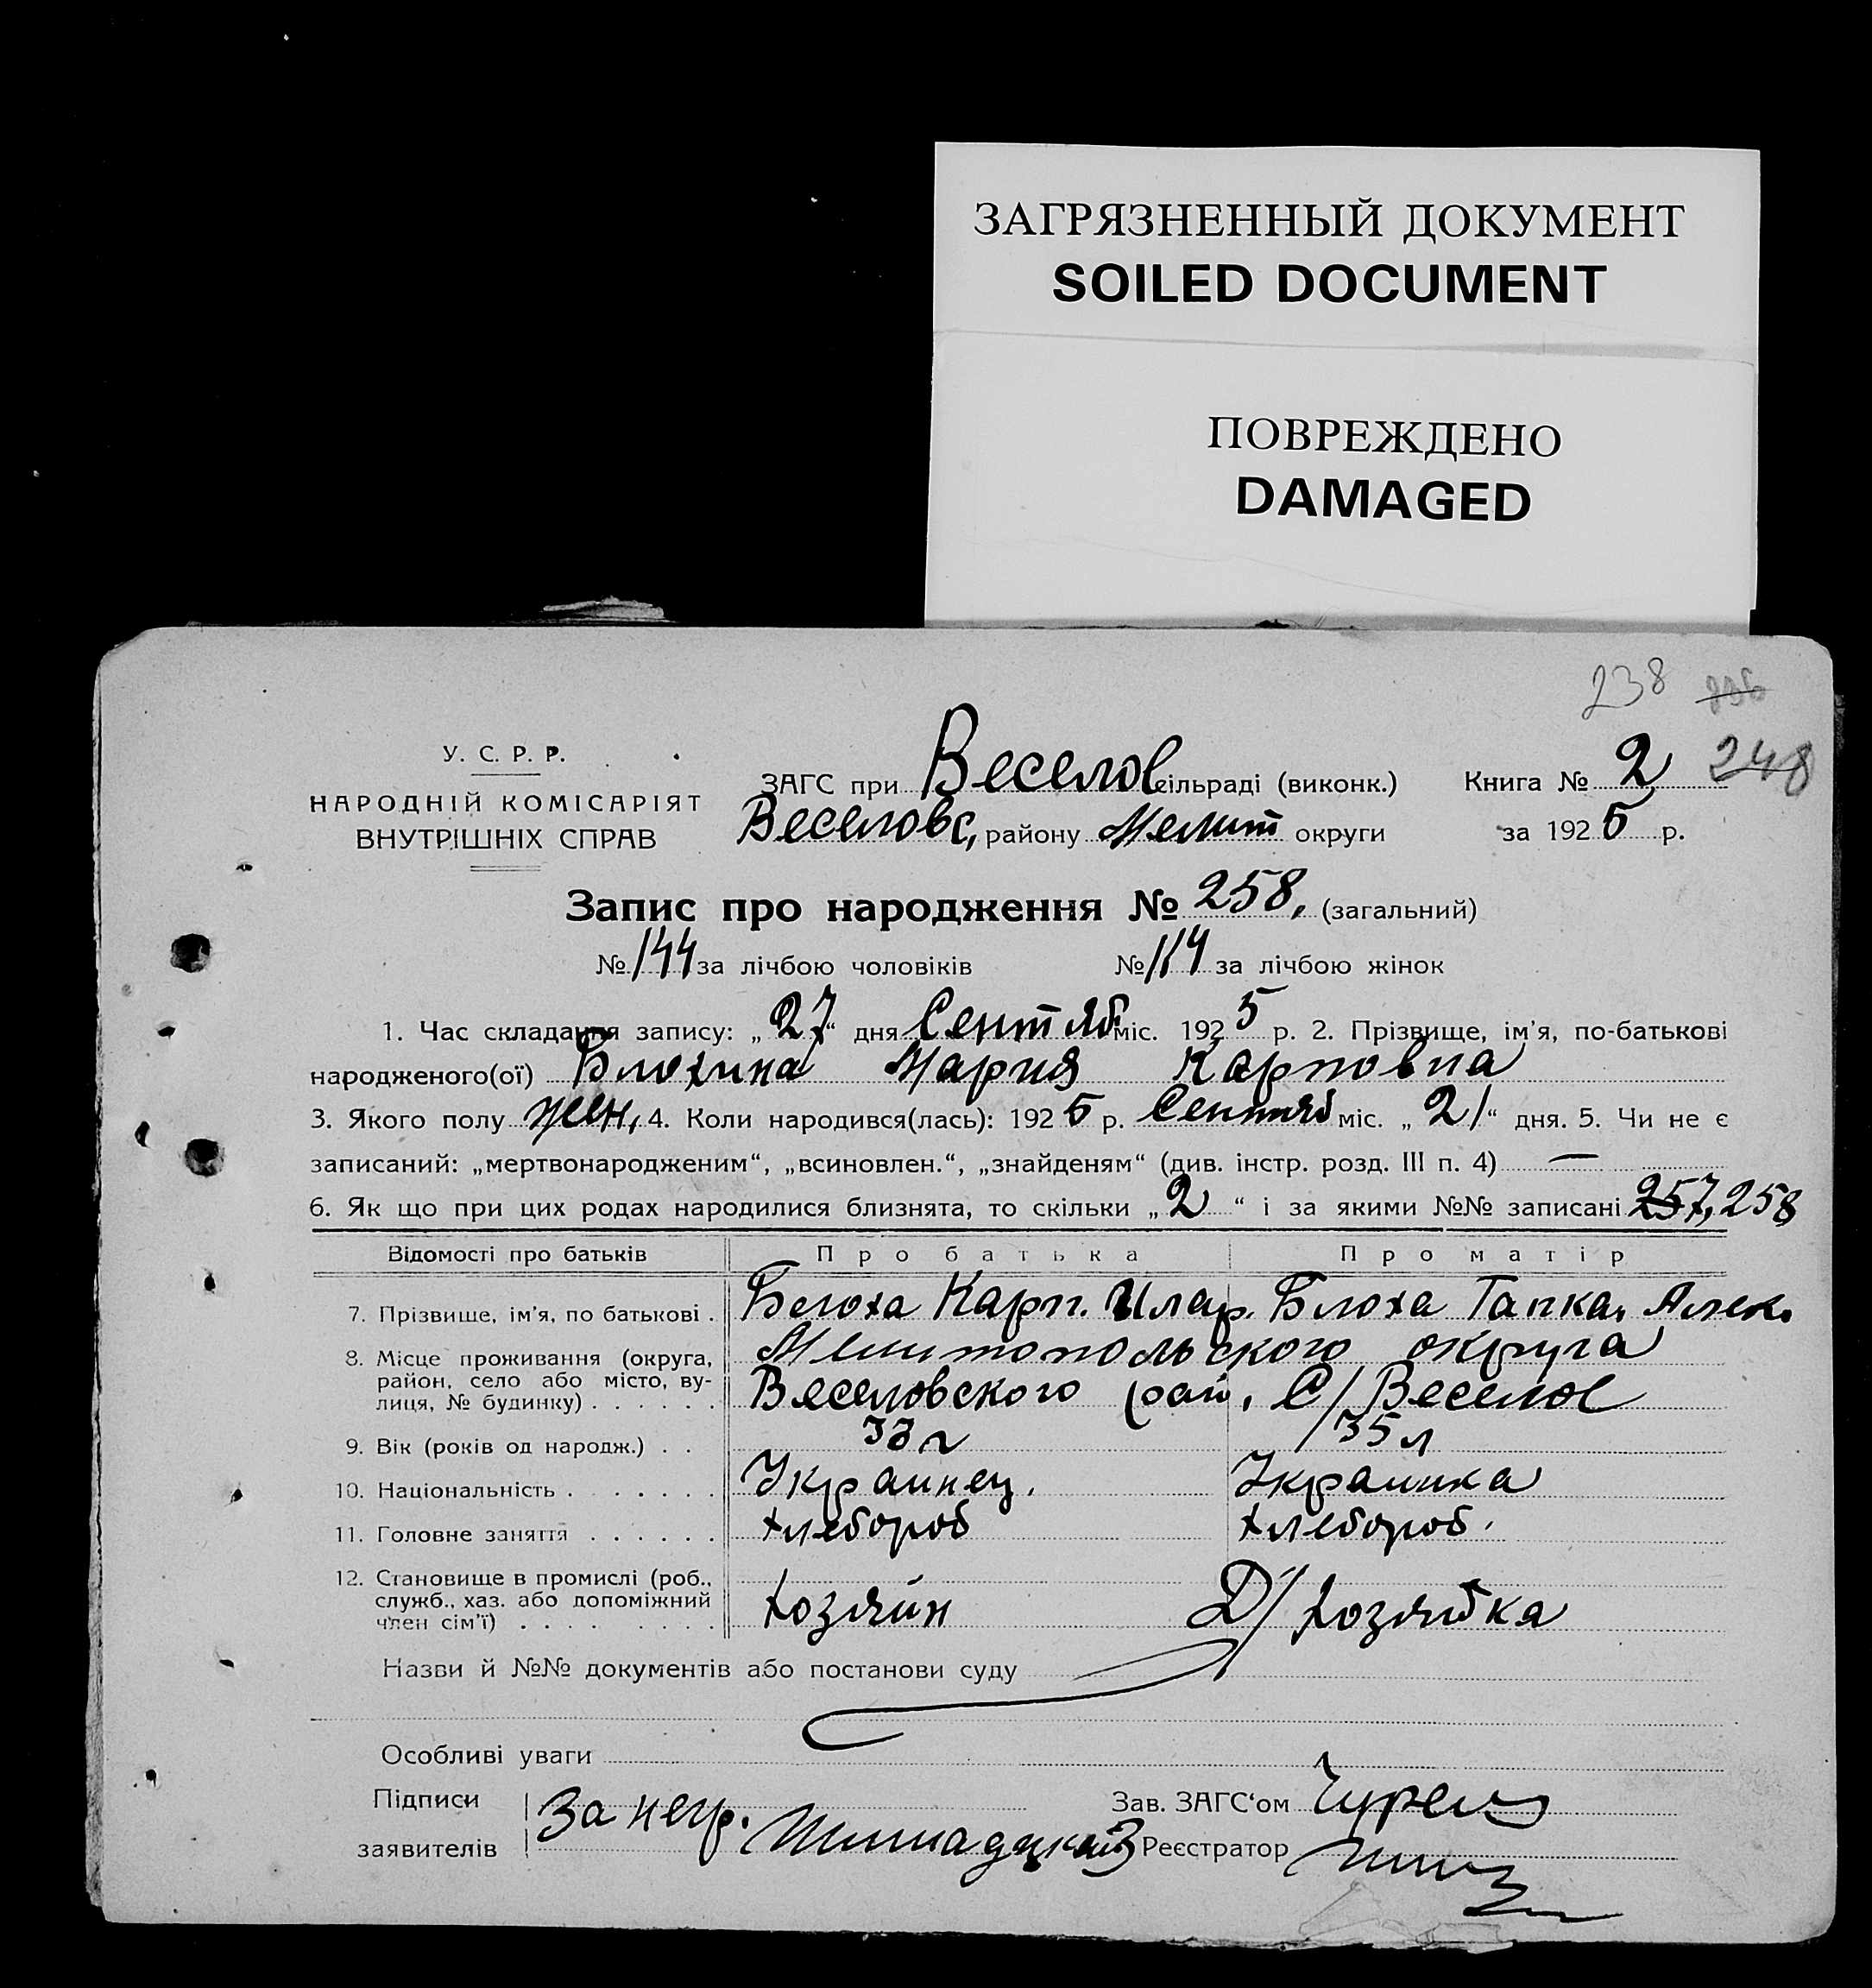 ЗАГРЯЗНЕННЫЙ ДОКУМЕНТ
SOILED DOCUMENT
ПОВРЕЖДЕНО
DAMAGED
238
У. С. Р. Р.
НАРОДНІЙ КОМІСАРІЯТ
ВНУТРІШНІХ СПРАВ
ЗАГС при Веселов сільраді (виконк.) Книга № 2 248
Веселовс, району Мелит округи за 1925 р.
Запис про народження № 258, (загальний)
№ 144 за лічбою чоловіків № 114 за лічбою жінок
1. Час складання запису: „27“ дня Сентяб міс. 1925 р. 2. Прізвище, ім’я, по-батькові
народженого(ої) Блохина Мария Карповна
3. Якого полу жен, 4. Коли народився(лась): 1925 р. Сентяб міс. „21“ дня. 5. Чи не є
записаний: „мертвонародженим“, „всиновлен.“, „знайденям“ (див. інстр. розд. III п. 4) —
6. Як що при цих родах народилися близнята, то скільки „2“ і за якими №№ записані 257, 258
Відомості про батьків Про батька Про матір
7. Прізвище, ім’я, по батькові . Блоха Карп. Илар. Блоха Гапка, Алек.
8. Місце проживання (округа, район, село або місто, ву-
лиця, № будинку) . . . . . . Мелитопольского округа
Веселовского рай, С/Веселое
9. Вік (років од народж.) . . 33 г 35 л
10. Національність . . . . . . . Украинец. Украинка
11. Головне заняття . . . . . . Хлебороб Хлебороб.
12. Становище в промислі (роб.,
служб., хаз. або допоміжний
член сім’ї) . . . . . . . . Хозяин Д/Хозяйка
Назви й №№ документів або постанови суду
Особливі уваги
Підписи
заявителів За негр.
Зав. ЗАГС‘ом
Реєстратор